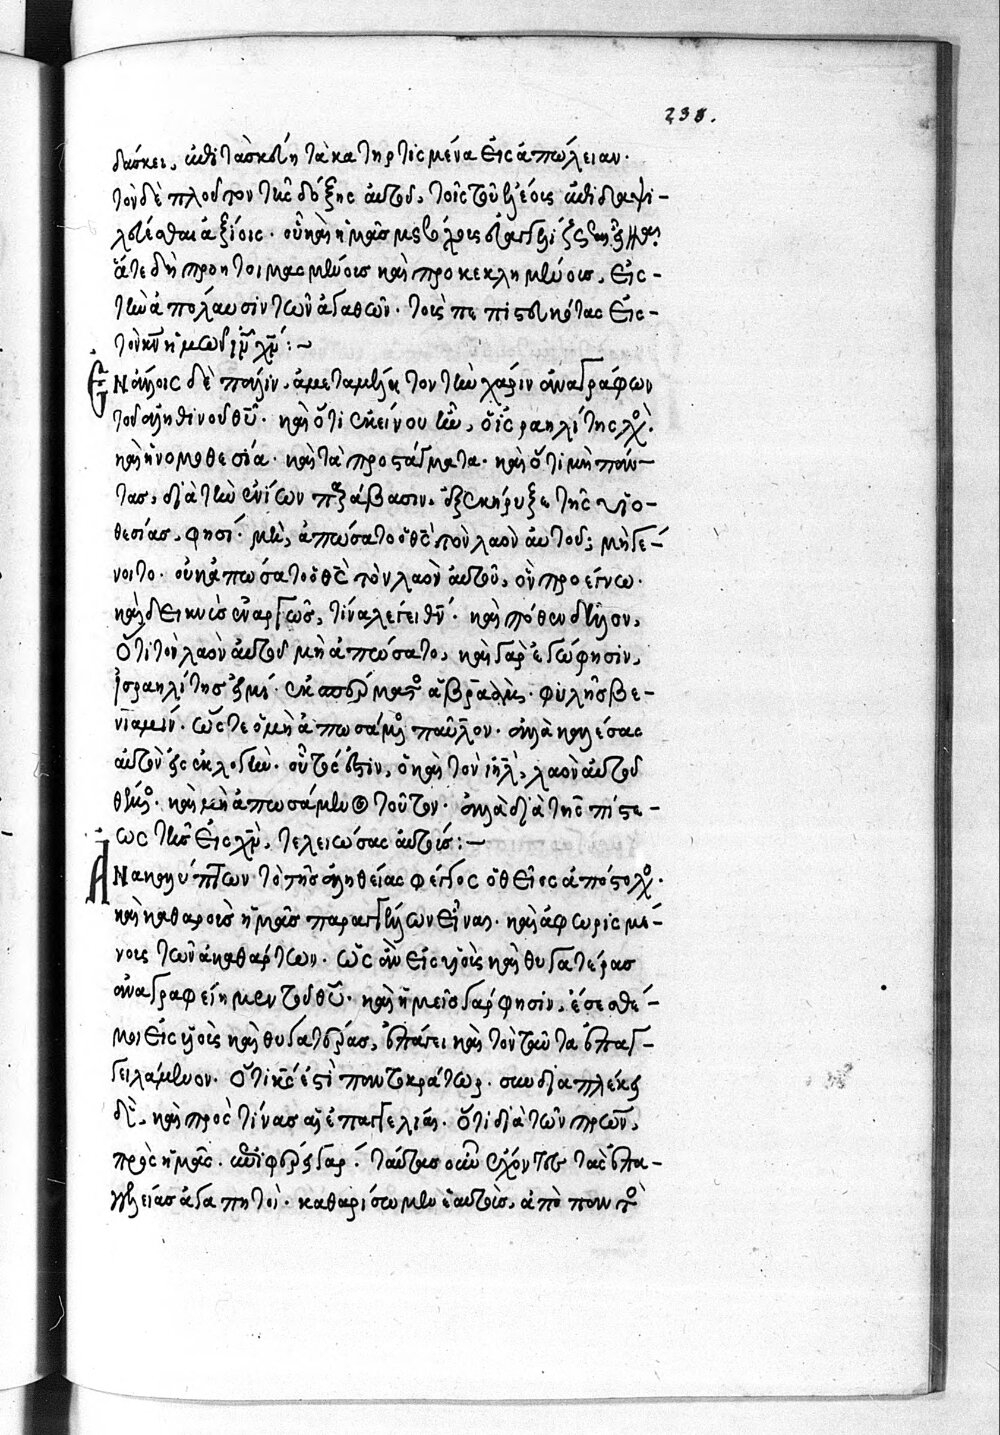 238.
δάσκει, ἐπὶ τὰ σκεύη τὰ κατηρτισμένα εἰς ἀπώλειαν.
τὸν δὲ πλοῦτον τῆς δόξης αὐτοῦ, τοῖς τοῦ ἐλέους ἐπιδαψι-
λεύεσθαι ἀξίοις. οὓς καὶ ἡμᾶς
ἅτε δὴ προητοιμασμένοις καὶ προκεκλημένοις, εἰς
τὴν ἀπόλαυσιν τῶν ἀγαθῶν. τοὺς πεπιστευκότας εἰς
τὸν κν ἡμῶν ιν χν:~
Ἐν ἄλλοις δὲ πάλιν, ἀμεταμέλητον τὴν χάριν ἀναγράφων
τοῦ ἀληθινοῦ θυ. καὶ ὅτι ἐκείνου ἦν, ὁ ἰσραηλίτης λαός.
καὶ ἡ νομοθεσία. καὶ τὰ προστάγματα. καὶ ὅτι μὴ πάν-
τας, διὰ τὴν ἐνίων παράβασιν, ἐξεκήρυξε τῆς υἱο-
θεσίας, φησί. μὴ, ἀπώσατο ὁ θς τὸν λαὸν αὐτοῦ; μὴ γέ-
νοιτο. οὐκ ἀπώσατο ὁ θς τὸν λαὸν αὐτοῦ, ὃν προέγνω.
καὶ δεικνὺς ἐναργῶς, τίνα λέγει θν. καὶ πόθεν δῆλον,
ὅτι τὸν λαὸν αὐτοῦ μὴ ἀπώσατο, καὶ γὰρ ἐγώ φησιν,
ἰσραηλίτης εἰμί. ἐκ σπέρματος ἀβραάμ. φυλῆς βε-
νιαμίν. ὥστε ὁ μὴ ἀπωσάμενος παῦλον. ἀλλὰ καλέσας
αὐτὸν εἰς ἐκλογήν. οὗτός ἐστιν, ὁ καὶ τὸν ιηλ, λαὸν αὐτοῦ
θέμενος. καὶ μὴ ἀπωσάμενος τοῦτον. ἀλλὰ διὰ τῆς πίστε-
ως τῆς εἰς χν, τελειώσας αὐτούς:~
Ἀνακαλύπτων τὸ τῆς ἀληθείας φέγγος ὁ θεῖος ἀπόστολος.
καὶ καθαροὺς ἡμᾶς παραγγέλλων εἶναι. καὶ ἀφωρισμέ-
νους τῶν ἀκαθάρτων. ὡς ἂν εἰς υἱοὺς καὶ θυγατέρας
ἀναγραφείημεν τοῦ θυ. καὶ ἡμεῖς γάρ φησιν, ἔσεσθέ
μοι εἰς υἱοὺς καὶ θυγατέρας, ἐπάγει καὶ τὸν ταῦτα ἐπαγ-
γειλάμενον. ὅτι κς ἐστὶ παντοκράτωρ. συνδιαπλέκει
δὲ, καὶ πρὸς τίνας αἱ ἐπαγγελίαι. ὅτι διὰ τῶν πρώτων,
πρὸς ἡμᾶς. ἐπιφέρει γάρ. ταύτας οὖν ἔχοντες τὰς ἐπα-
γγελίας ἀγαπητοί. καθαρίσωμεν ἑαυτοὺς, ἀπὸ παντὸς